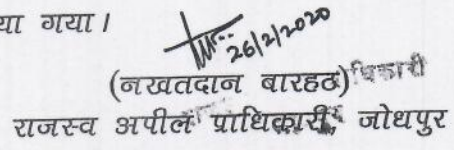 या गया।
26/2/2020
(नखतदान बारहठ)
राजस्व अपील प्राधिकारी, जोधपुर